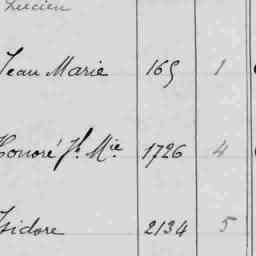 Lucien
Jean Marie 165 1
Honoré Jh. Mie. 1726 4
Isidore 2134 5